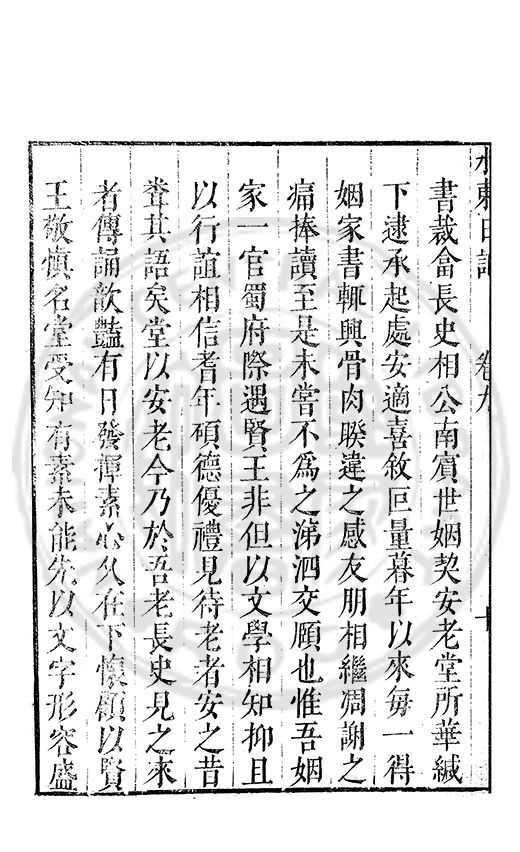 水東日記 卷九 十
書裁畣長史相公南賓世姻契安老堂所華緘
下逮承起處安適喜敘叵量暮年以來每一得
姻家書輒興骨肉睽違之感友朋相繼凋謝之
痛捧讀至是未嘗不爲之涕泗交頤也惟吾姻
家一官蜀府際遇賢王非但以文學相知抑且
以行誼相信耆年碩德優禮見待老者安之昔
聳其語矣堂以安老今乃於吾老長史見之來
者傳誦歆豔有日發揮素心久在下懷顧以賢
王敬慎名堂受知有素未能先以文字形容盛